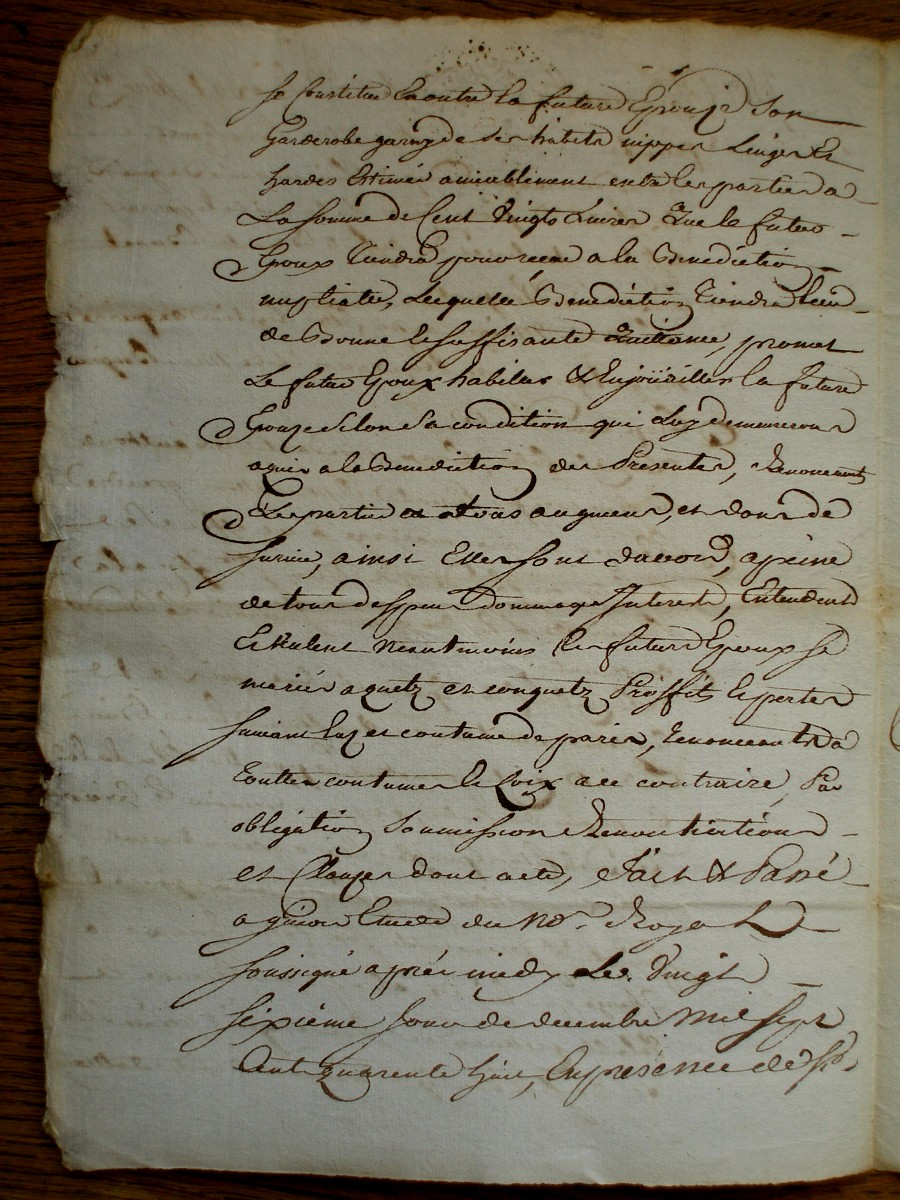 Se Constitue En outre la future Epouze son
Garderobe garny de ses habits nippes Linges Et
hardes Estimée amieblement entre les parties a
La somme de Cent Vingts Livres Que le futur
Epoux Tiendra pour receu a la Benediction
nuptiale, Lequelle Benediction Tiendra lieu
de Bonne Et suffisante Quittance, promet
Le futur Epoux habiller & Enjoüailler la future
Epouze selon Sa condition qui Luy demeureront
aquis a la Benediction des Presentes, Renonceants
Les parties a tous augment, et dons de
survie, ainsi Elles sont d'accord, a peine
de tous despens dommages Interests, Entendent
Et Veulent neautmoins les futurs Epoux se
mariés aquetz et conquetz Proffits Et pertes
suivant luz et coutume de paris, Renonceants a
Touttes coutumes Et Loix a ce contraire, Par
obligation Soumission Renontiations
et Clauzes dont acte, Fait & Passé
a Etude du No.re Royal
soussigné aprés midy Le Vingt
sixième Jour de decembre Mil sept
Cent quarente huit, En presence de Sr.